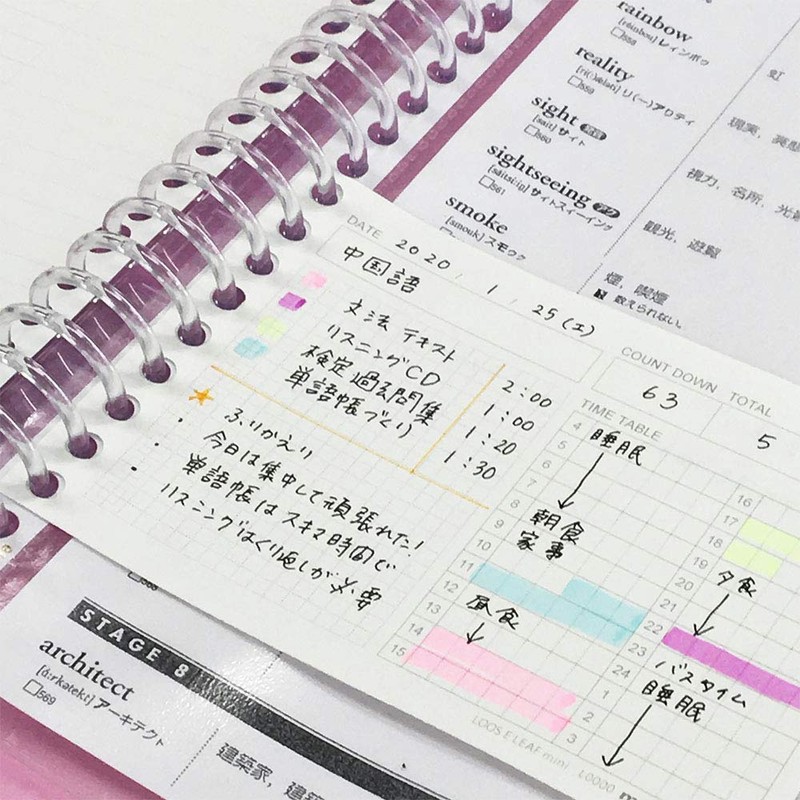 rainbow
[réinbou] レインボウ
□558
虹
reality
[ri(ː)ǽləti] リ(ー)アリティ
□559
sight
[sait] サイト
□560
視力, 名所,
sightseeing
[sáitsìːiŋ] サイトスィーイング
□561
観光, 遊覧
smoke
[smouk] スモウク
煙, 喫煙
数えられない。
DATE 2020 / 1 / 25 (土)
中国語
文法 テキスト 2:00
リスニングCD 1:00
検定過去問集 1:20
単語帳づくり 1:30
ふりかえり
・今日は集中して頑張れた!
・単語帳はスキマ時間で
・リスニングはくり返しが必要
COUNT DOWN
63
TOTAL
5
TIME TABLE
4
5 睡眠
6
7
8
9 朝食
10 家事
11
12
13 昼食
14
15
16
17
18
19
20 夕食
21
22
23
24 バスタイム
1 睡眠
2
3
LOOSE LEAF mini
STAGE 8
architect
[ɑ́ːrkətekt] アーキテクト
□569
建築家,